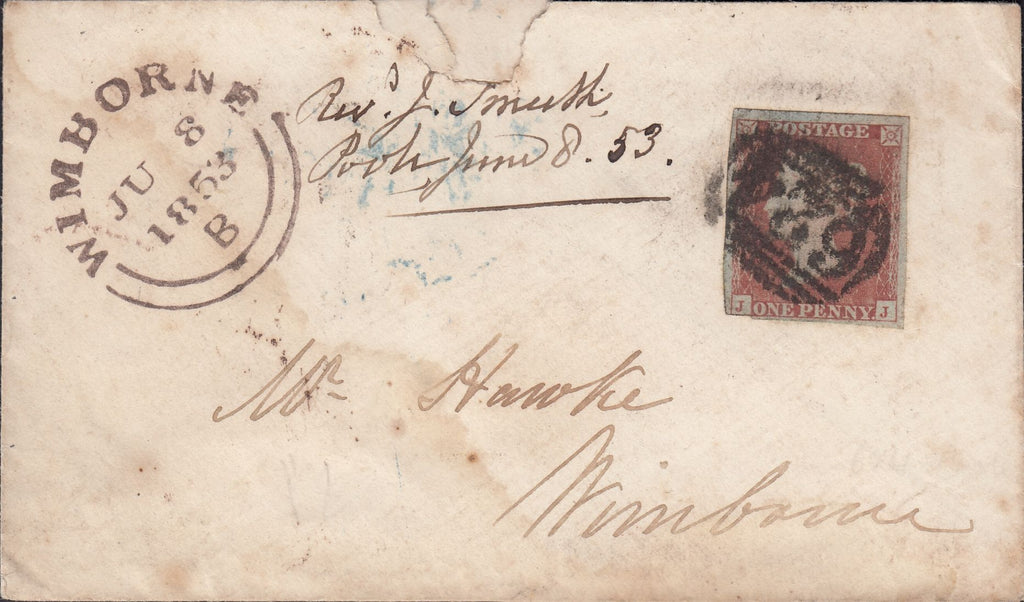 WIMBORNE
JU 8
1853
B
Revd. J. Smith
Poole, June 8. 53.
POSTAGE
J ONE PENNY. J
Mr Hawke
Wimborne